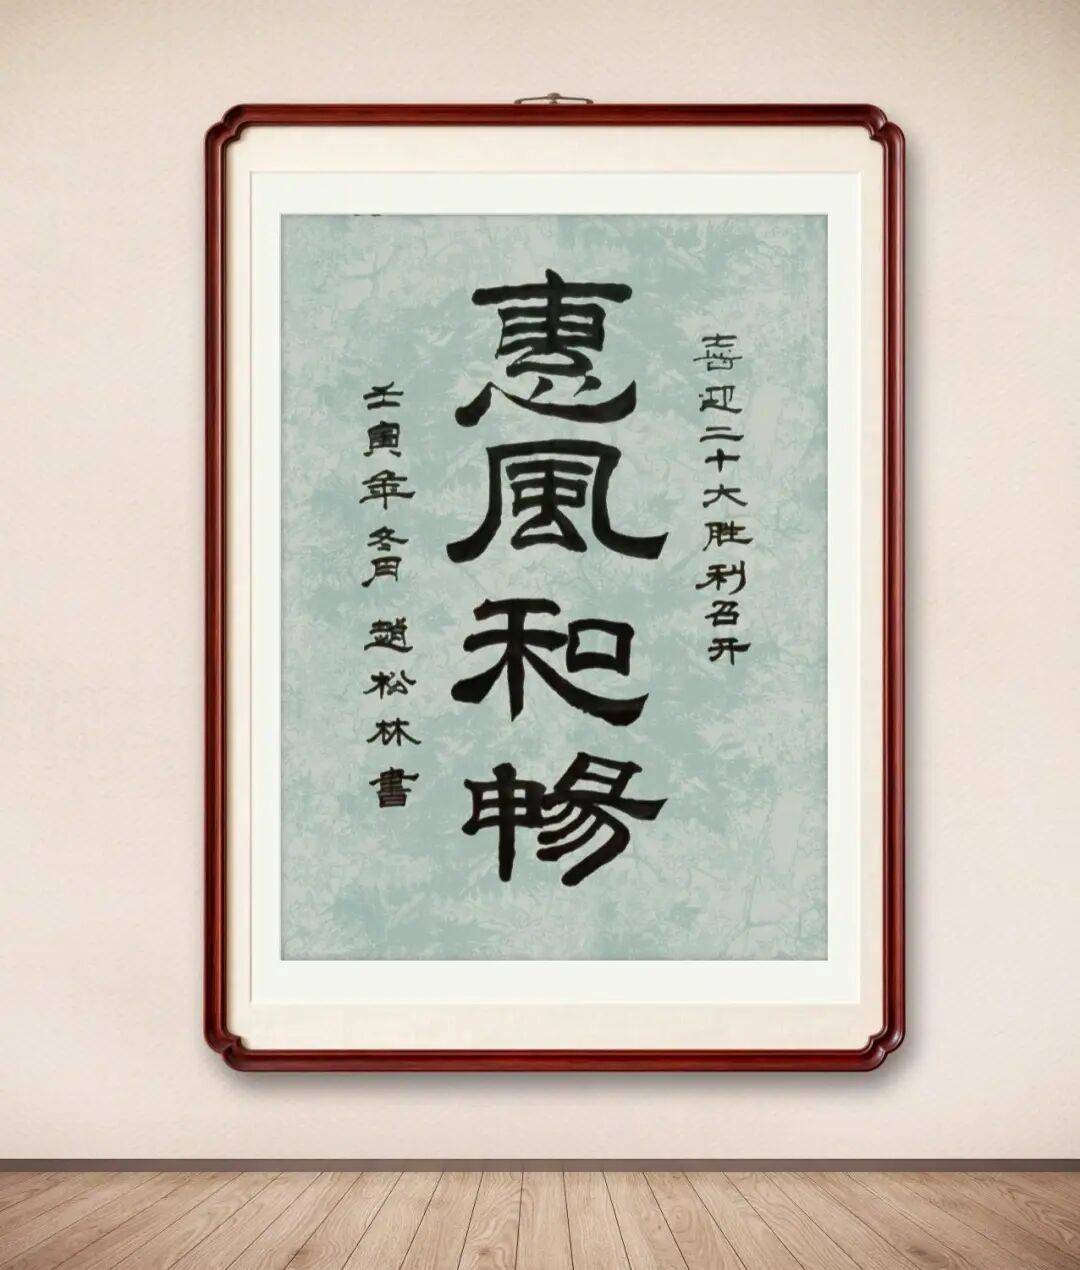 喜迎二十大胜利召开
惠風和暢
壬寅年冬月 趙松林書